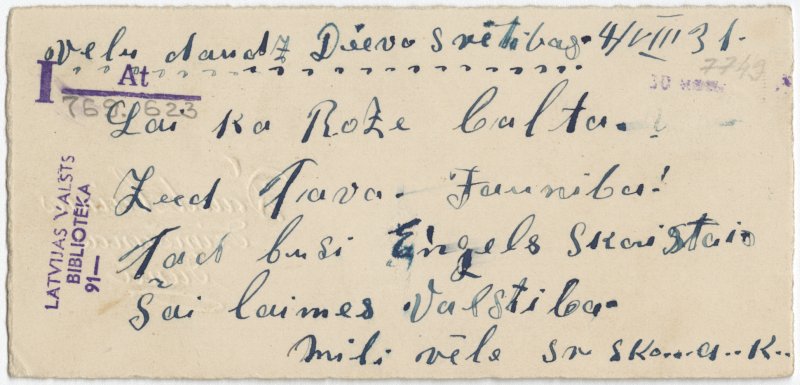 Vēlu daudz Dieva svētības. 4/VIII 31.
I At
769.623
7749
Lai ka Rože balta.
Zied Tava Jauniba!
Tad busi Eņgels skaistais
Šai laimes Valstiba.
Mīļi vēle
LATVIJAS VALSTS
BIBLIOTĒKA
91—